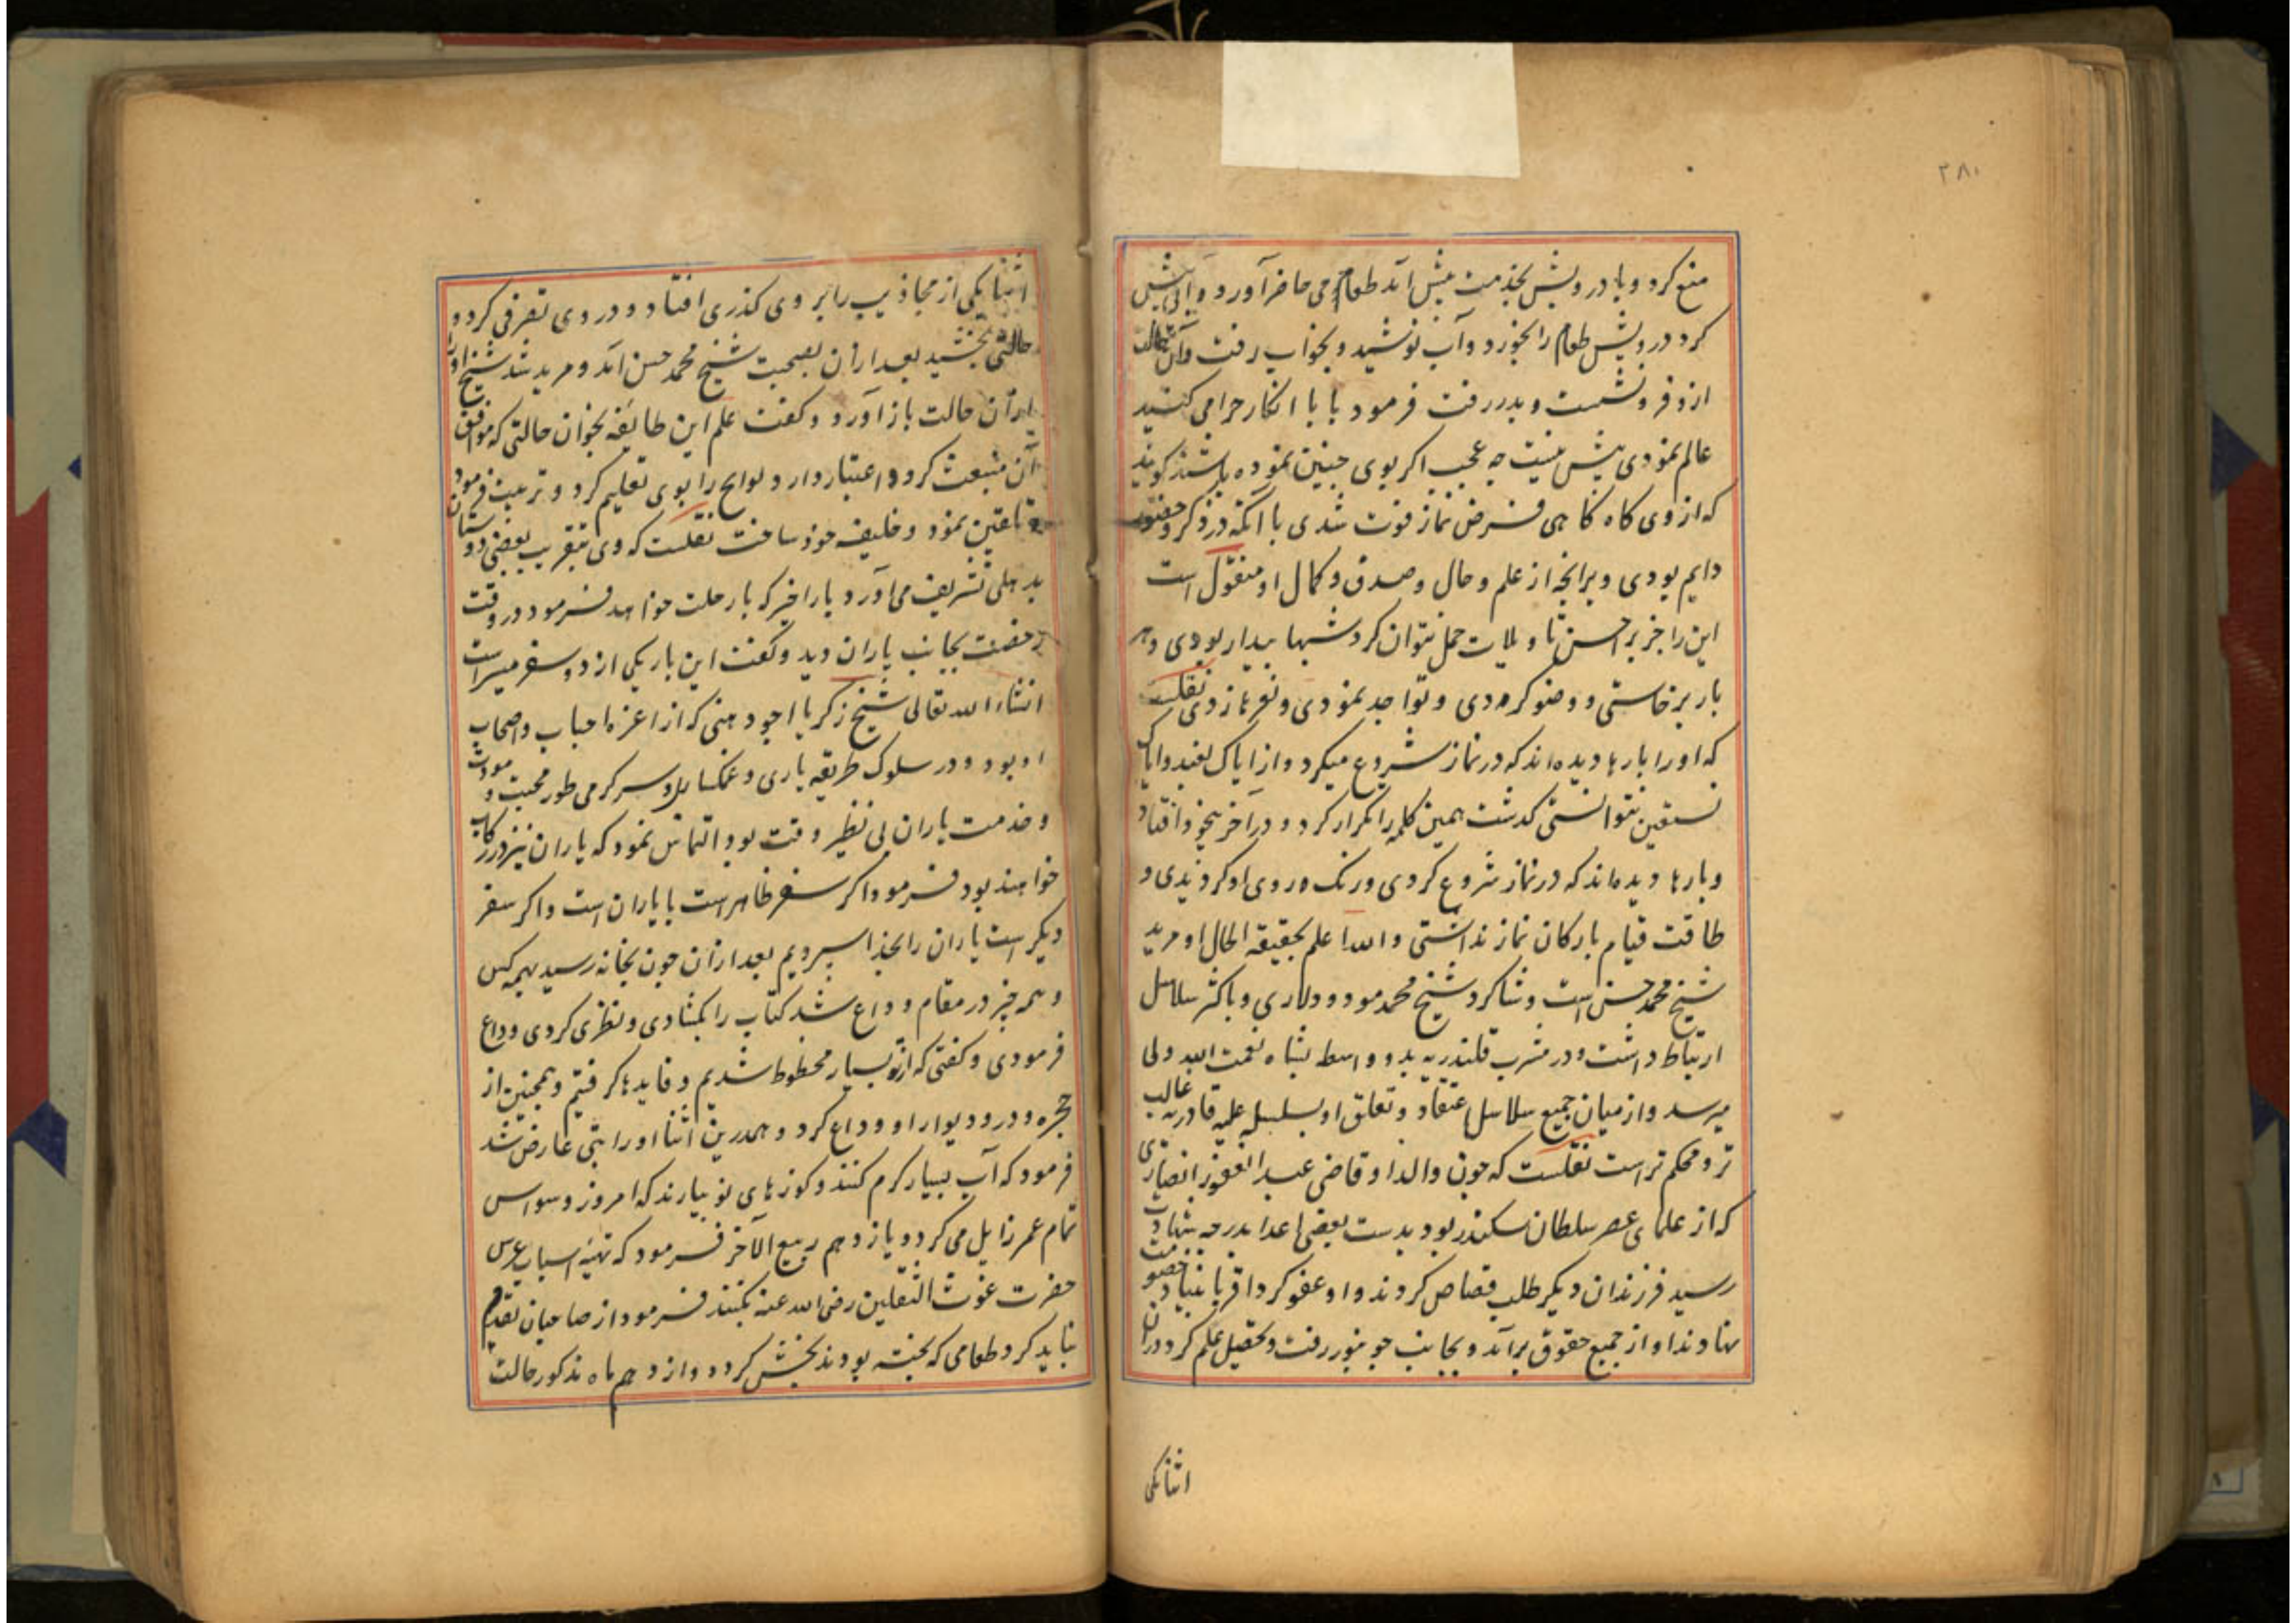 ۲۸۰
منع کرد و با درویش بخدمت پیش آمد طعام می حاضر آورد و آبی پیش
کرد درویش طعام را بخورد و آب نوشید و بخواب رفت و آن حالت
ازو فرو نشست و بدر رفت فرمود بابا انکار چرا می کنید
عالم نمودی پیش نیست چه عجب اکر بوی چنین نموده باشند کویند
که از وی کاه کاهی فرض نماز فوت شدی با آنکه در ذکر و حضور
دایم بودی و برانچه از علم و حال و صدق و کمال او منقول است
این را جز بر احسن تاویلات حمل نتوان کرد شبها بیدار بودی و هر
بار برخاستی و وضو کردی و تواجد نمودی و نعرها زدی نقلست
که او را بارها دیده اند که در نماز شروع میکرد و از ایاک نعبد و ایاک
نستعین نتوانستی کذشت همین کلمه را تکرار کرد و در آخر بیخود افتاد
و بارها دیده اند که در نماز شروع کردی و رنک روی او کردیدی و
طاقت قیام بارکان نماز نداشتی والله اعلم بحقیقه الحال او مرید
شیخ محمد حسن است و شاکرد شیخ محمد مودود لاری و باکثر سلاسل
ارتباط داشت و در مشرب قلندریه بدو واسط بشاه نعمت الله ولی
میرسد و از میان جمیع سلاسل اعتقاد و تعلق او بسلسله علیه قادریه غالب
تر و محکم تر است نقلست که چون والد او قاضی عبد الغفور انصاری
که از علمای عصر سلطان سکندر بود بدست بعضی اعدا بدرجه شهادت
رسید فرزندان دیکر طلب قصاص کردند و او عفو کرد اقربا بنیاد خصومت
نهادند او از جمیع حقوق برآمد و بجانب جونپور رفت و تحصیل علم کرد دران
اثنا یکی
اثنا یکی از مجاذیب را بر وی کذری افتاد و در وی تصرفی کرد و
حالتی بخشید بعد ازان بصحبت شیخ محمد حسن آمد و مرید شد شیخ او را
ازان حالت باز آورد و کفت علم این طایفه بخوان حالتی که موافق
آن منبعث کردد اعتبار دارد و لوایح را بوی تعلیم کرد و تربیت فرمود
و تلقین نمود و خلیفه خود ساخت نقلست که وی بتقریب بعضی دوستان
بدهلی تشریف می آورد بار اخیر که بار حلت خواهد فرمود در وقت
رخصت بجانب یاران دید و کفت این بار یکی از دو سفر میسر است
انشاء الله تعالی شیخ زکریا اجودهنی که از اعزه احباب و اصحاب
او بود و در سلوک طریقه یاری و غمکساری و سرکرمی طور محبت و مودت
و خدمت یاران بی نظیر وقت بود التماس نمود که یاران نیز در رکاب
خواهند بود فرمود اکر سفر ظاهر است با یاران است و اکر سفر
دیکر است یاران را بخدا سپردیم بعد ازان چون بخانه رسید بهمه کس
و همه چیز در مقام وداع شد کتاب را بکشادی و نظری کردی وداع
فرمودی و کفتی که از تو بسیار محظوظ شدیم و فایدها کرفتیم و همچنین از
حجره و در و دیوار او وداع کرد و همدرین اثنا او را تبی عارض شد
فرمود که آب بسیار کرم کنند و کوزهای نو بیارند که امروز وسواس
تمام عمر زایل می کردد یازدهم ربیع الآخر فرمود که تهیه اسباب عرس
حضرت غوث الثقلین رضی الله عنه بکنند فرمود از صاحبان تقدم
نباید کرد طعامی که پخته بودند بخش کرد دوازدهم ماه مذکور حالت